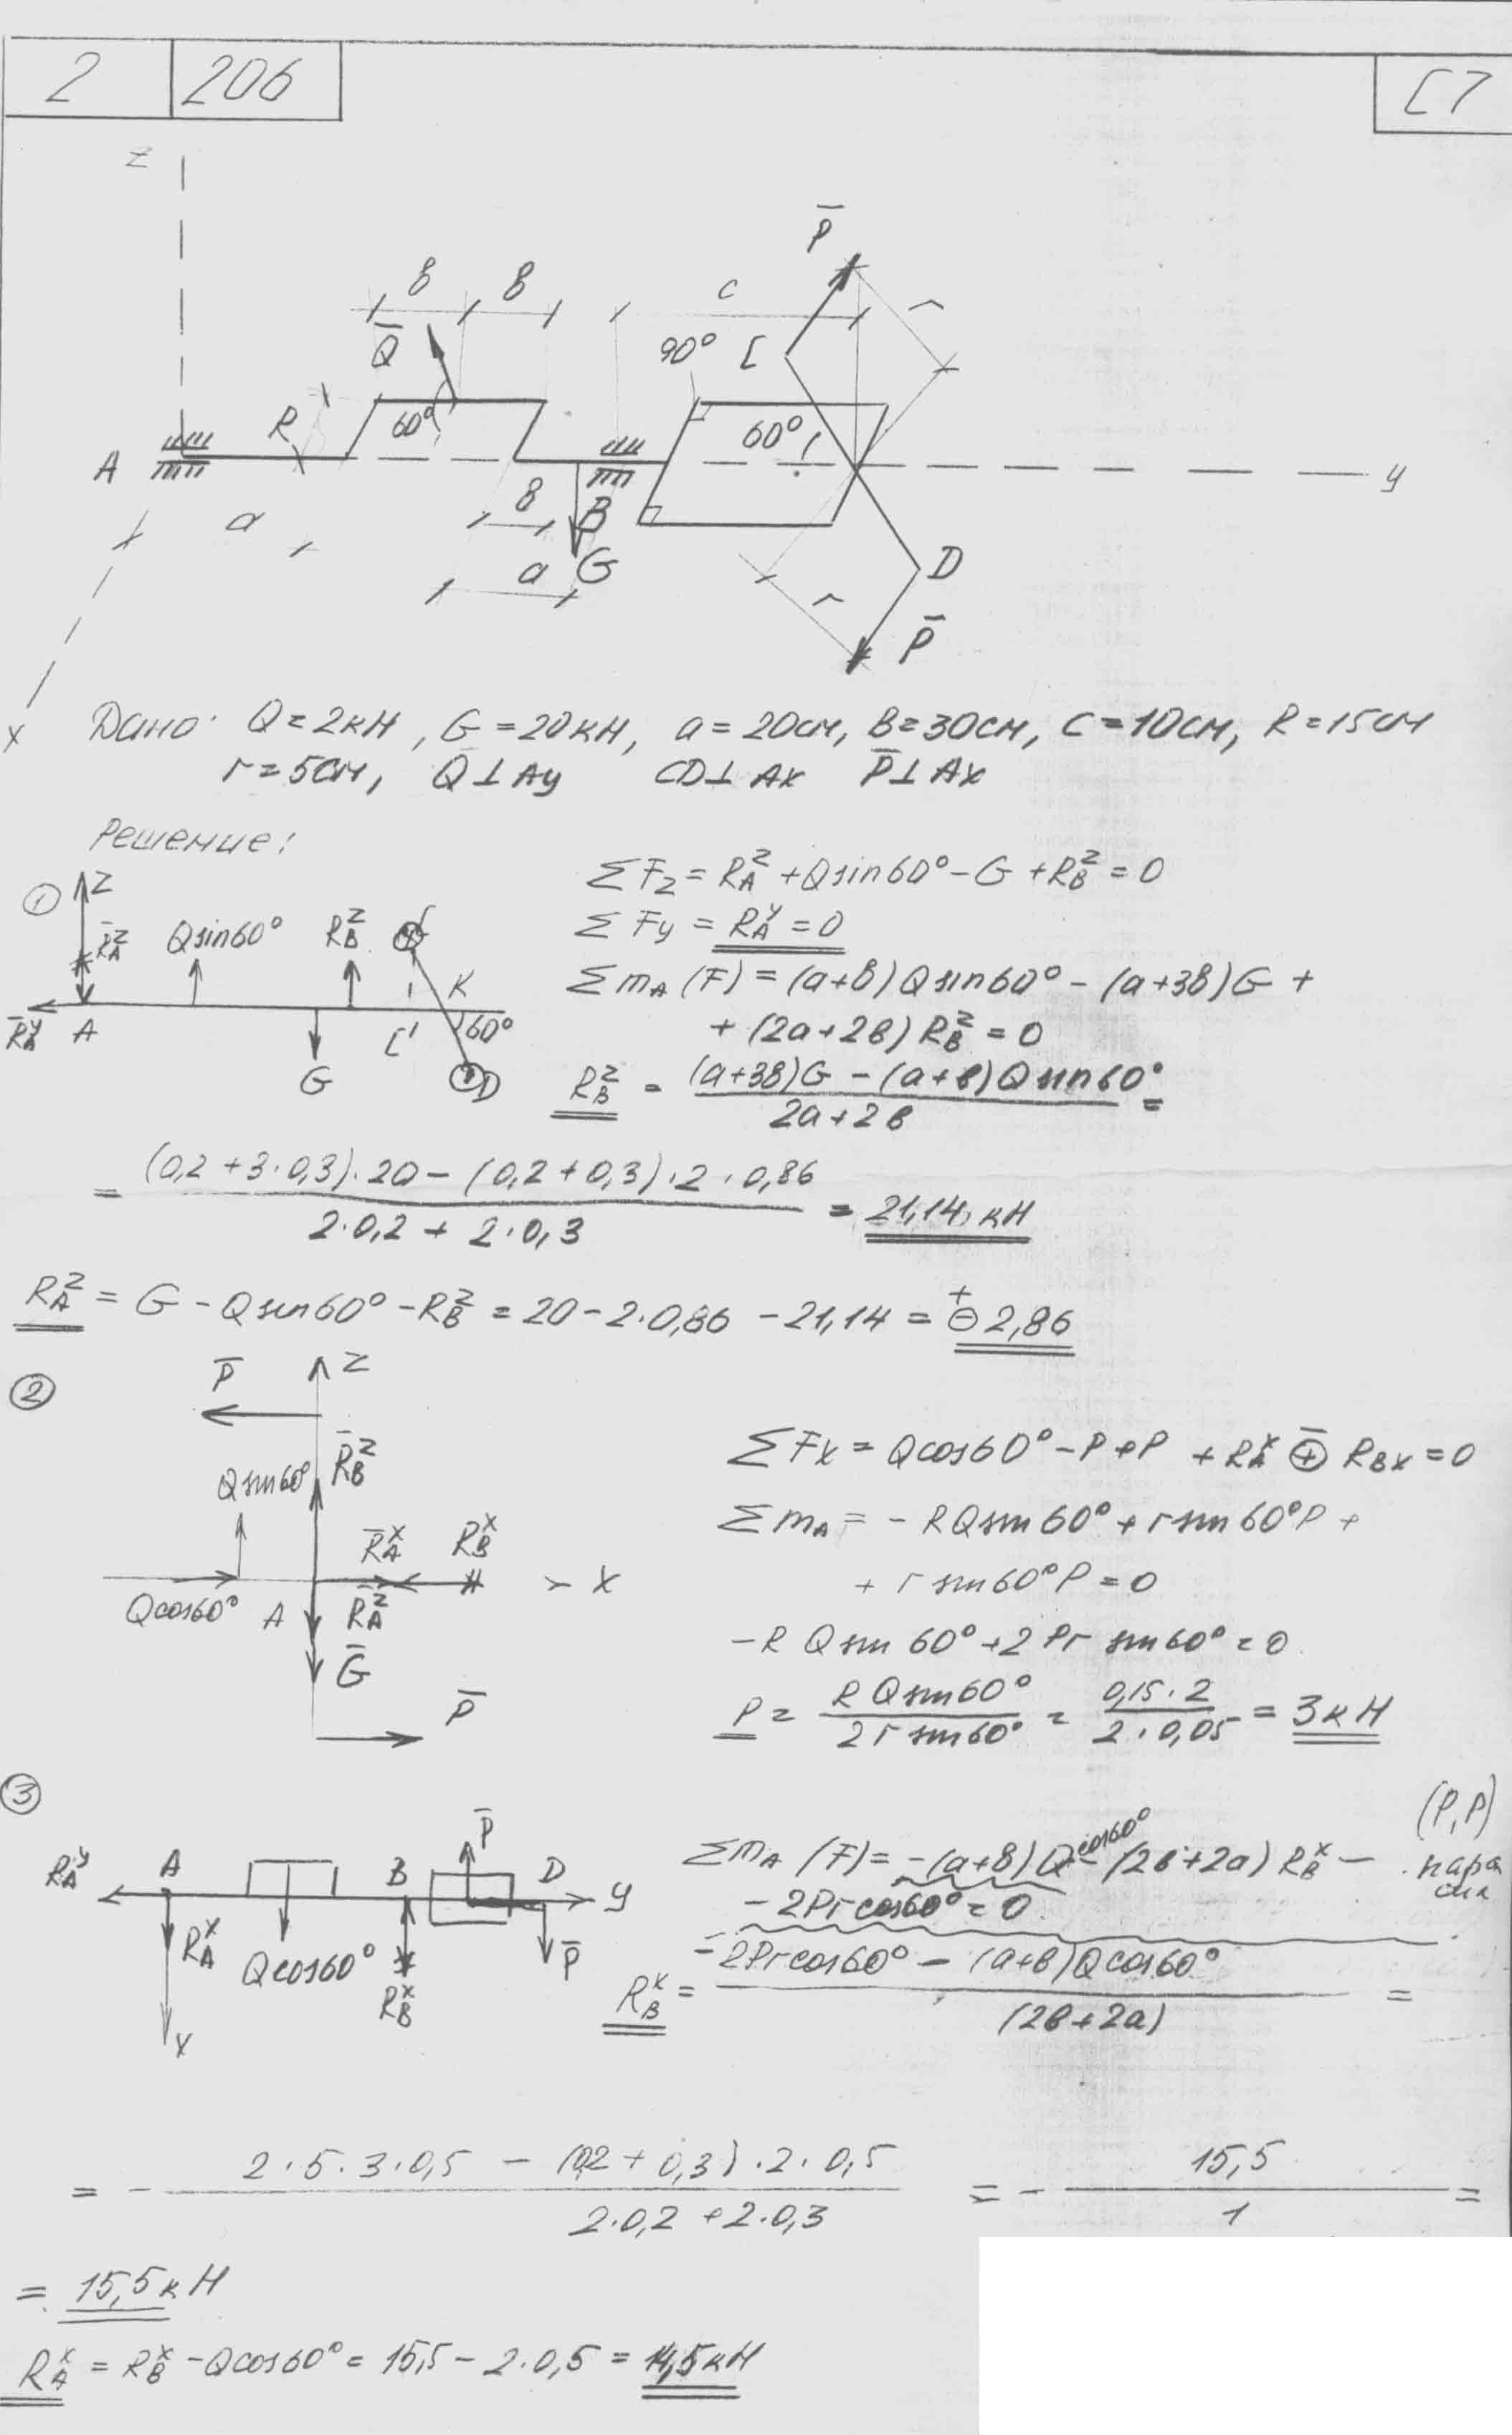 2 206 С7
z
P̄
в в c r
Q̄ 90° C
R 60° 60°
A y
a в B D
a G r
P̄
x
Дано: Q=2кН, G=20кН, a=20см, в=30см, c=10см, R=15см
r=5см, Q̄⊥Ay CD⊥Ax P̄⊥Ax
Решение:
① z
R̄_A^z Qsin60° R_B^z C
R̄_A^y A C' K 60°
G D
ΣF_z = R_A^z + Qsin60° - G + R_B^z = 0
ΣF_y = R_A^y = 0
Σm_A(F) = (a+в)Qsin60° - (a+3в)G +
+ (2a+2в)R_B^z = 0
R_B^z = ((a+3в)G - (a+в)Qsin60°)/(2a+2в) =
= ((0,2+3·0,3)·20 - (0,2+0,3)·2·0,86)/(2·0,2+2·0,3) = 21,14 кН
R_A^z = G - Qsin60° - R_B^z = 20 - 2·0,86 - 21,14 = + ⊖ 2,86
② P̄ z
Qsin60° R̄_B^z
R̄_A^x R_B^x x
Qcos60° A R̄_A^z
Ḡ
P̄
ΣF_x = Qcos60° - P + P + R_A^x - ⊕ R_Bx = 0
Σm_A = -RQsin60° + rsin60°P +
+ rsin60°P = 0
-RQsin60° + 2Prsin60° = 0
P = RQsin60°/2rsin60° = 0,15·2/2·0,05 = 3кН
③ P̄
R_A^y A B D y
R_A^x Qcos60° R_B^x P̄
x
Σm_A(F) = -(a+в)Qcos60° - (2в+2a)R_B^x - (P,P)
-2Prcos60° = 0 пара сил
R_B^x = (-2Prcos60° - (a+в)Qcos60°)/(2в+2a) =
= - (2·5·3·0,5 - (0,2+0,3)·2·0,5)/(2·0,2+2·0,3) = - 15,5/1 =
= 15,5кН
R_A^x = R_B^x - Qcos60° = 15,5 - 2·0,5 = 14,5кН